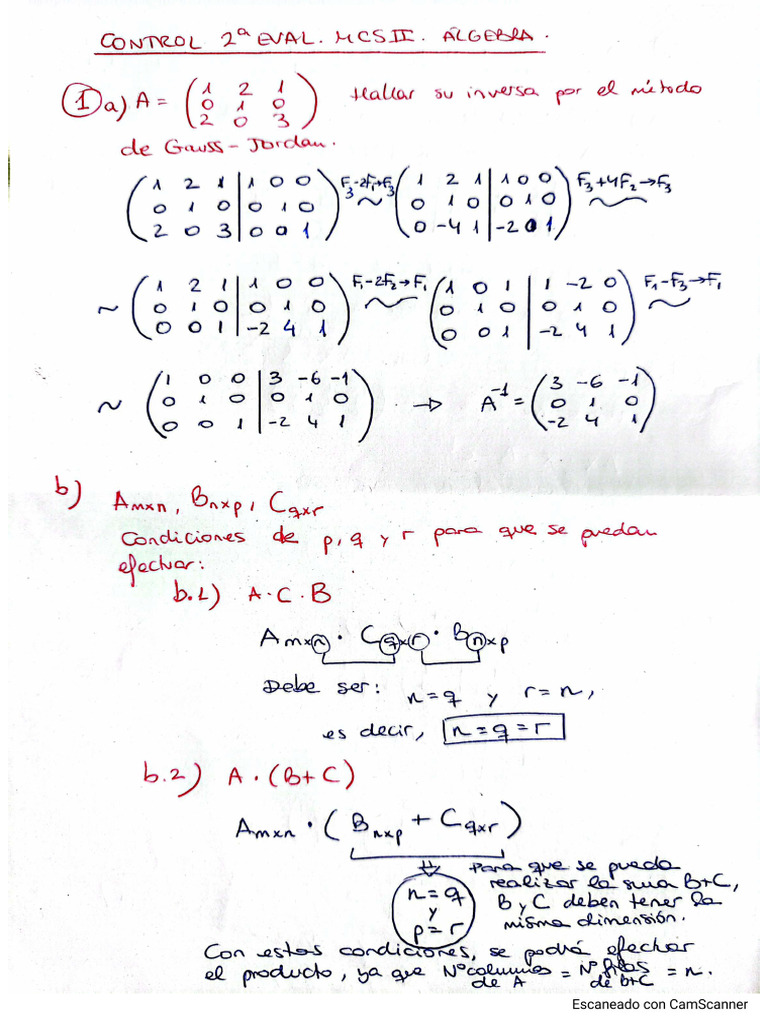 CONTROL 2ª EVAL. MCSII. ÁLGEBRA.
1 a) A = ( 1 2 1 ; 0 1 0 ; 2 0 3 ) Hallar su inversa por el método
de Gauss-Jordan.
( 1 2 1 | 1 0 0 ; 0 1 0 | 0 1 0 ; 2 0 3 | 0 0 1 ) F3-2F1→F3 ~ ( 1 2 1 | 1 0 0 ; 0 1 0 | 0 1 0 ; 0 -4 1 | -2 0 1 ) F3+4F2→F3 ~
~ ( 1 2 1 | 1 0 0 ; 0 1 0 | 0 1 0 ; 0 0 1 | -2 4 1 ) F1-2F2→F1 ~ ( 1 0 1 | 1 -2 0 ; 0 1 0 | 0 1 0 ; 0 0 1 | -2 4 1 ) F1-F3→F1 ~
~ ( 1 0 0 | 3 -6 -1 ; 0 1 0 | 0 1 0 ; 0 0 1 | -2 4 1 ) → A⁻¹ = ( 3 -6 -1 ; 0 1 0 ; -2 4 1 )
b) Amxn, Bnxp, Cqxr
Condiciones de p, q y r para que se puedan
efectuar:
b.1) A·C·B
Amxn · Cqxr · Bnxp
Debe ser: n=q y r=n,
es decir, n=q=r
b.2) A·(B+C)
Amxn · (Bnxp + Cqxr)
⇓
n=q
y
p=r
Para que se pueda
realizar la suma B+C,
B y C deben tener la
misma dimensión.
Con estas condiciones, se podrá efectuar
el producto, ya que Nº columnas de A = Nº filas de B+C = n.
Escaneado con CamScanner